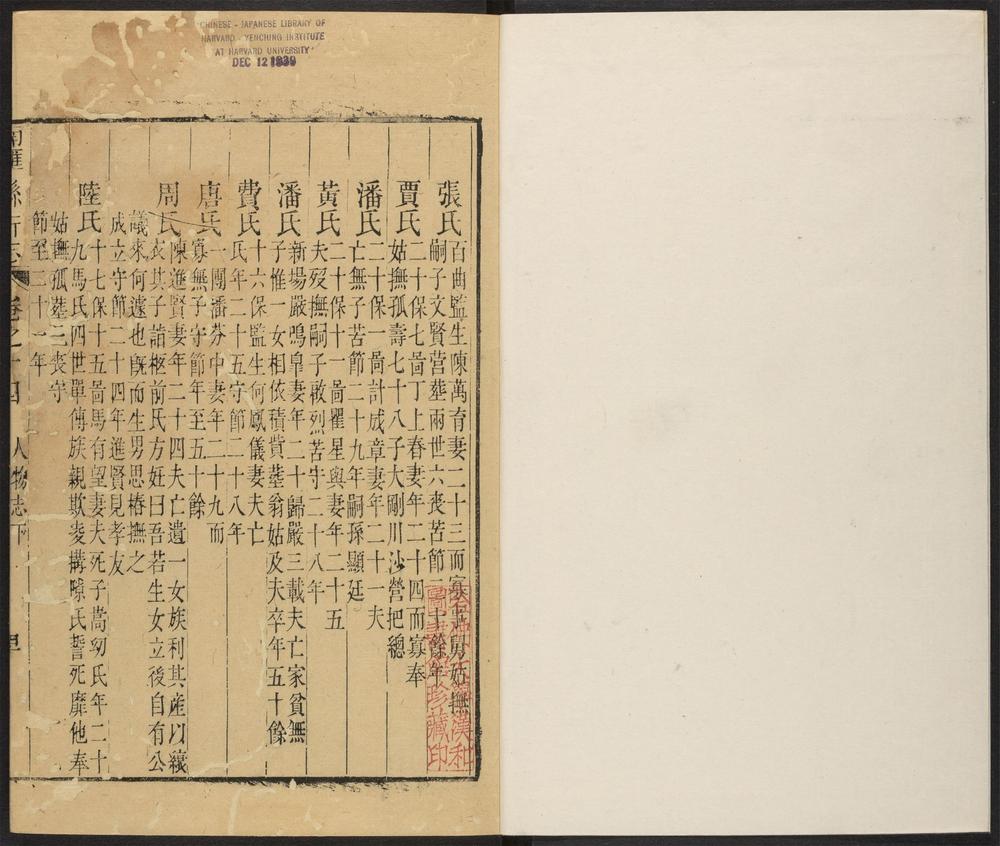 CHINESE - JAPANESE LIBRARY OF
HARVARD - YENCHING INSTITUTE
AT HARVARD UNIVERSITY
DEC 12 1939
張氏
百曲監生陳萬育妻二十三而寡事舅姑撫
嗣子文賢营塟兩世六丧苦節二十餘年
賈氏
二十保七啚丁上春妻年二十四而寡奉
姑撫孤壽七十八子大剛川沙營把緫
潘氏
二十保一啚計成章妻年二十一夫
亡無子苦節二十九年嗣孫顯廷
黃氏
二十保十一啚瞿星與妻年二十五
夫歿撫嗣子敢烈苦守二十八年
潘氏
新塲嚴鳴臯妻年二十歸嚴三載夫亡家貧無
子惟一女相依積貲塟翁姑及夫卒年五十餘
費氏
十六保監生何鳳儀妻夫亡
氏年二十五守節二十八年
唐氏
一團潘芬中妻年二十九而
寡無子守節年至五十餘
周氏
陳進賢妻年二十四夫亡遺一女族利其產以縗
衣其子詣柩前氏方妊曰吾若生女立後自有公
議來何遽也旣而生男思椿撫之
成立守節二十四年進賢見孝友
陸氏
十七保十五啚馬有望妻夫死子嵩幼氏年二十
九馬氏四世單傳族親欺凌搆隙氏誓死靡他奉
姑撫孤塟三丧守
節至三十一年
卷之十四 人物志下
珍藏印